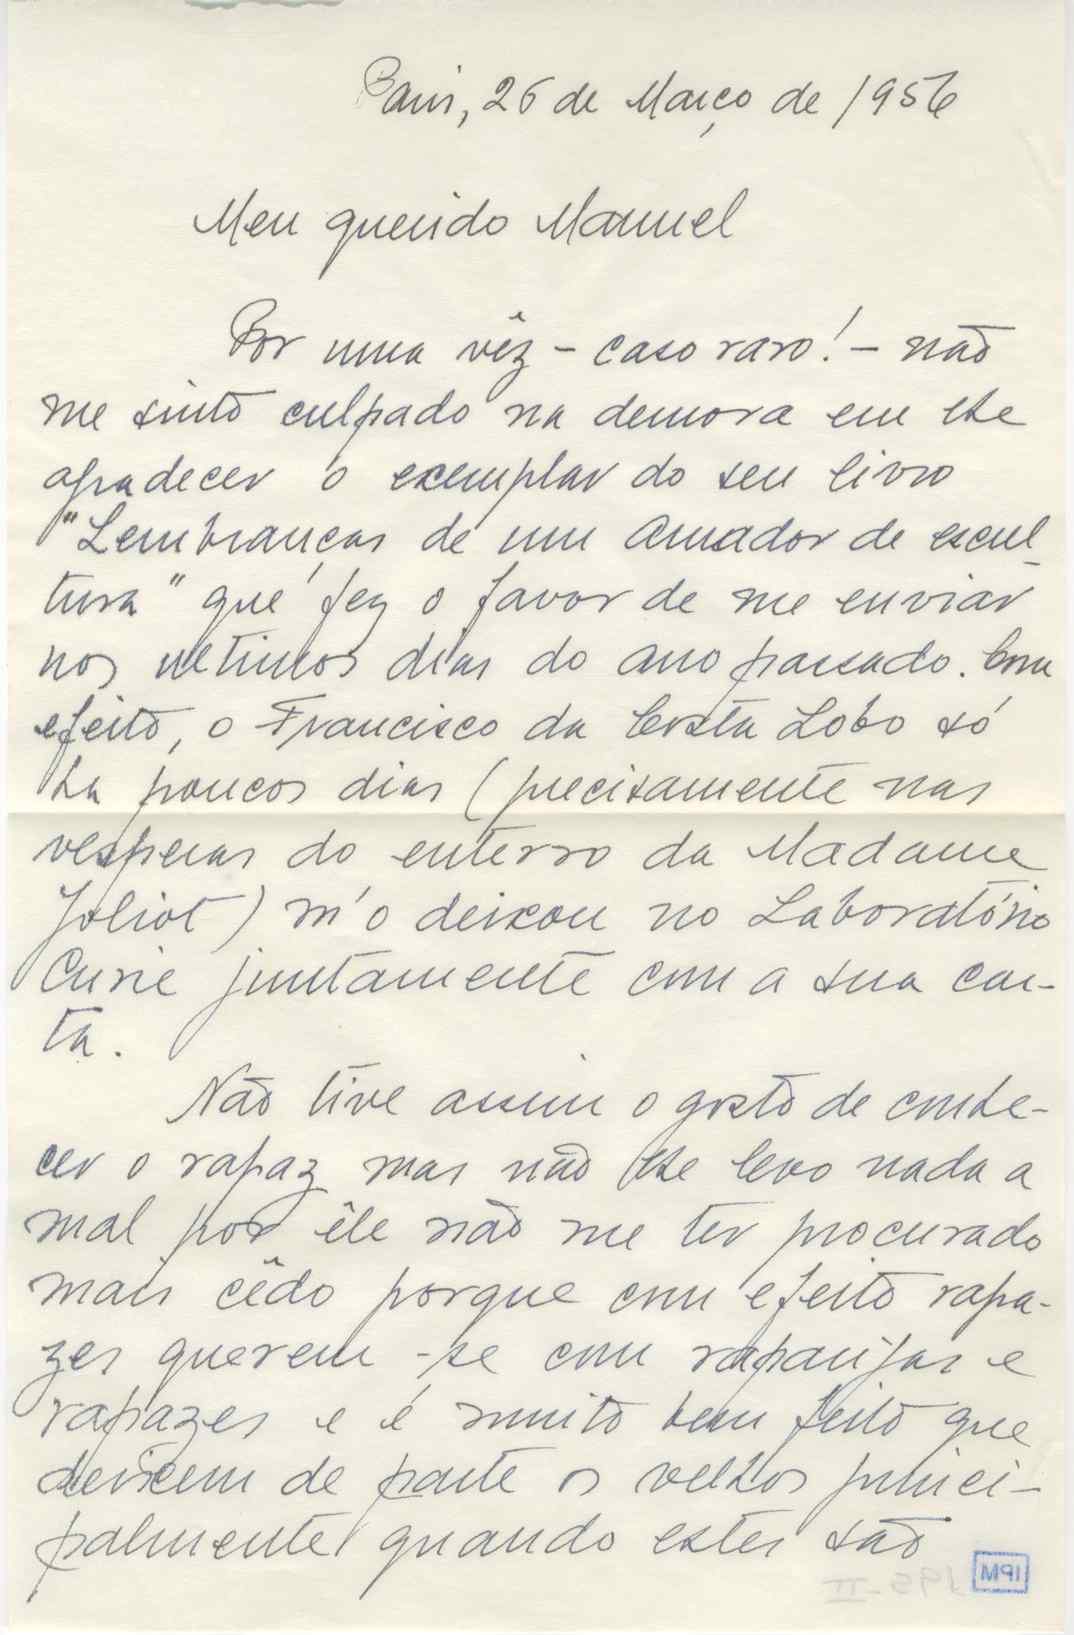 Paris, 26 de Março de 1956
Meu querido Manuel
Por uma vêz - caso raro! - não
me sinto culpado na demora em lhe
agradecer o exemplar do seu livro
"Lembranças de um amador de escul-
tura" que fez o favor de me enviar
nos ultimos dias do ano passado. Com
efeito, o Francisco da Costa Lobo só
ha poucos dias (precisamente nas
vesperas do enterro da Madame
Joliot) m'o deixou no Laboratório
Curie juntamente com a sua car-
ta.
Não tive assim o gosto de conhe-
cer o rapaz mas não lhe levo nada a
mal por êle não me ter procurado
mais cêdo porque com efeito rapa-
zes querem-se com raparigas e
rapazes e é muito bem feito que
deixem de parte os velhos princi-
palmente quando estes são
195-II
IPM